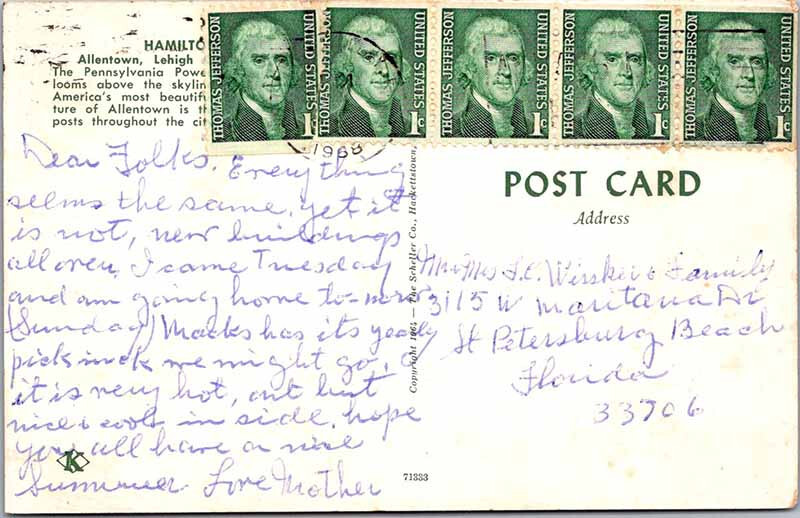 HAMILTO
Allentown, Lehigh
The Pennsylvania Powe
looms above the skylin
America's most beautif
ture of Allentown is th
posts throughout the cit
THOMAS JEFFERSON
UNITED STATES
1c
THOMAS JEFFERSON
UNITED STATES
1c
THOMAS JEFFERSON
UNITED STATES
1c
THOMAS JEFFERSON
UNITED STATES
1c
THOMAS JEFFERSON
UNITED STATES
1c
1968
Dear Folks. Everything
seems the same, yet it
is not, new buildings
all over, I came Tuesday
and am going home to-morr
(Sunday) Macks has its yearly
picknick we might go,
it is very hot, out but
nice & cool in side. hope
you all have a nice
Summer Love Mother
K
Copyright 1964 — The Scheller Co., Hackettstown,
71333
POST CARD
Address
Mr & Mrs & Family
3115 W Maritana Dr
St Petersburg Beach
Florida
33706